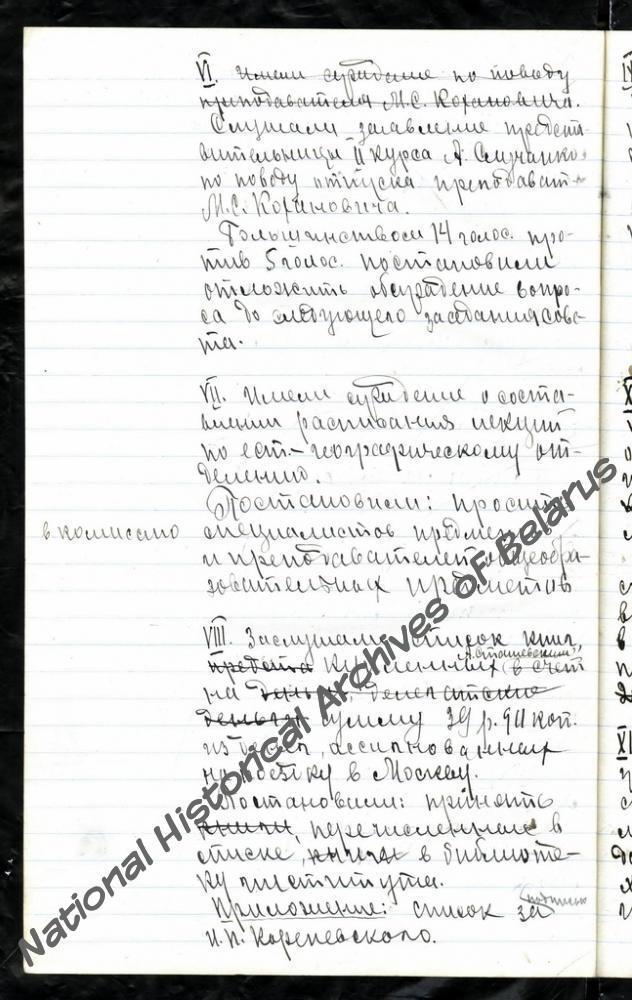 VI. Имели суждение по поводу
преподавателя М.С. Кохановича.
Слушали заявление предста-
вительницы II курса А. Случанко
по поводу отпуска преподават.
М.С. Кохановича.
Большинством 14 голос. про-
тив 5 голос. постановили
отложить обсуждение вопро-
са до следующего заседания сове-
та.
VII. Имели суждение о соста-
влении расписания лекций
по ест.-географическому от-
делению.
Постановили: просить
в комиссию
специалистов
и преподавателей общеобра-
зовательных предметов
VIII. Заслушали список книг,
купленных А. Сташевским, в счет
на деньги, делегатские
деньги сумму 39 р. 90 коп.
из ассигнованных
на поездку в Москву.
Постановили: принять
книги, перечисленные в
списке, книги в библиоте-
ку института.
Приложение: список за подписью
И.П. Кореневского.
National Historical Archives of Belarus